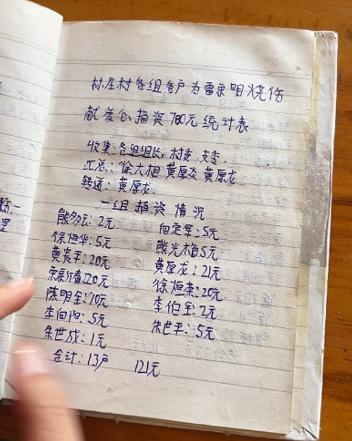 村庄村各组各户为雷泉明火烧伤
献爱心捐资780元统计表
收集:各组组长,村支.支委.
汇总:徐大相 黄厚炎 黄厚龙
转递:黄厚龙.
一组捐资情况
熊多元:2元 向定军:5元
徐恒华:5元 熊光柏5元
黄炎平:20元 黄厚龙:21元
20元 徐恒荣:20元
陈明金:10元 李伯金:2元
李向阳:5元 朱世平:5元
朱世成:1元
合计:13户 121元